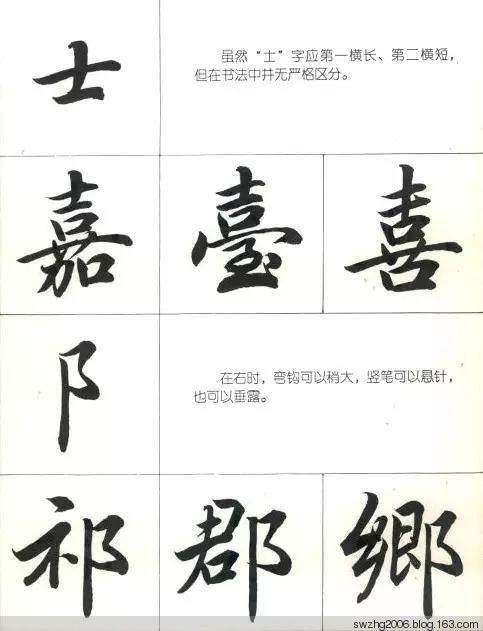 士
虽然“士”字应第一横长、第二横短,
但在书法中并无严格区分。
嘉 臺 喜
阝
在右时,弯钩可以稍大,竖笔可以悬针,
也可以垂露。
祁 郡 鄉
swzhg2006.blog.163.com